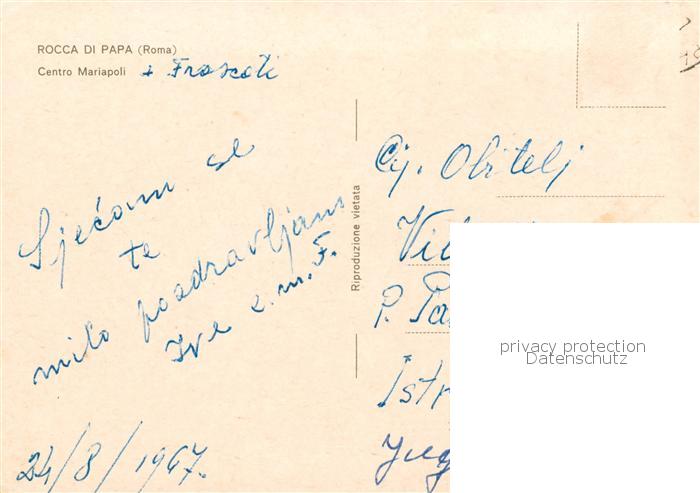 ROCCA DI PAPA (Roma)
Centro Mariapoli + Frascati
Sjećam se
te
milo pozdravljam
Sve s. m. F.
24/8/1967.
Riproduzione vietata
Cij. Obitelj
P.
Istr
Jug
privacy protection
Datenschutz